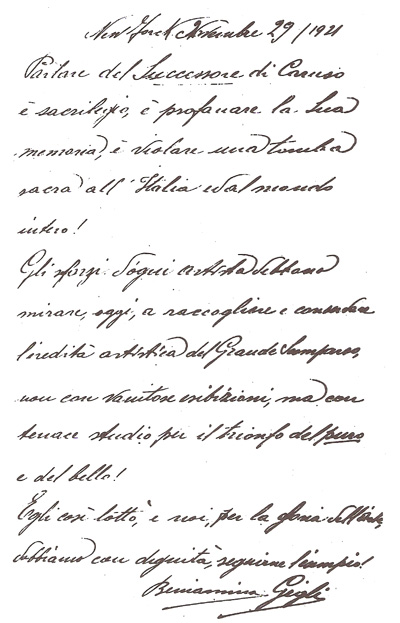 New York Novembre 29/1921
Parlare del Successore di Caruso
è sacrilegio, è profanare la Sua
memoria, è violare una tomba
sacra all'Italia ed al mondo
intero!
Gli sforzi d'ogni artista debbono
mirare, oggi, a raccogliere e conservare
l'eredità artistica del Grande Scomparso,
non con vanitose esibizioni, ma con
tenace studio per il trionfo del puro
e del bello!
Egli così lottò, e noi, per la gloria dell'Arte,
dobbiamo con dignità, seguirne l'esempio!
Beniamino Gigli